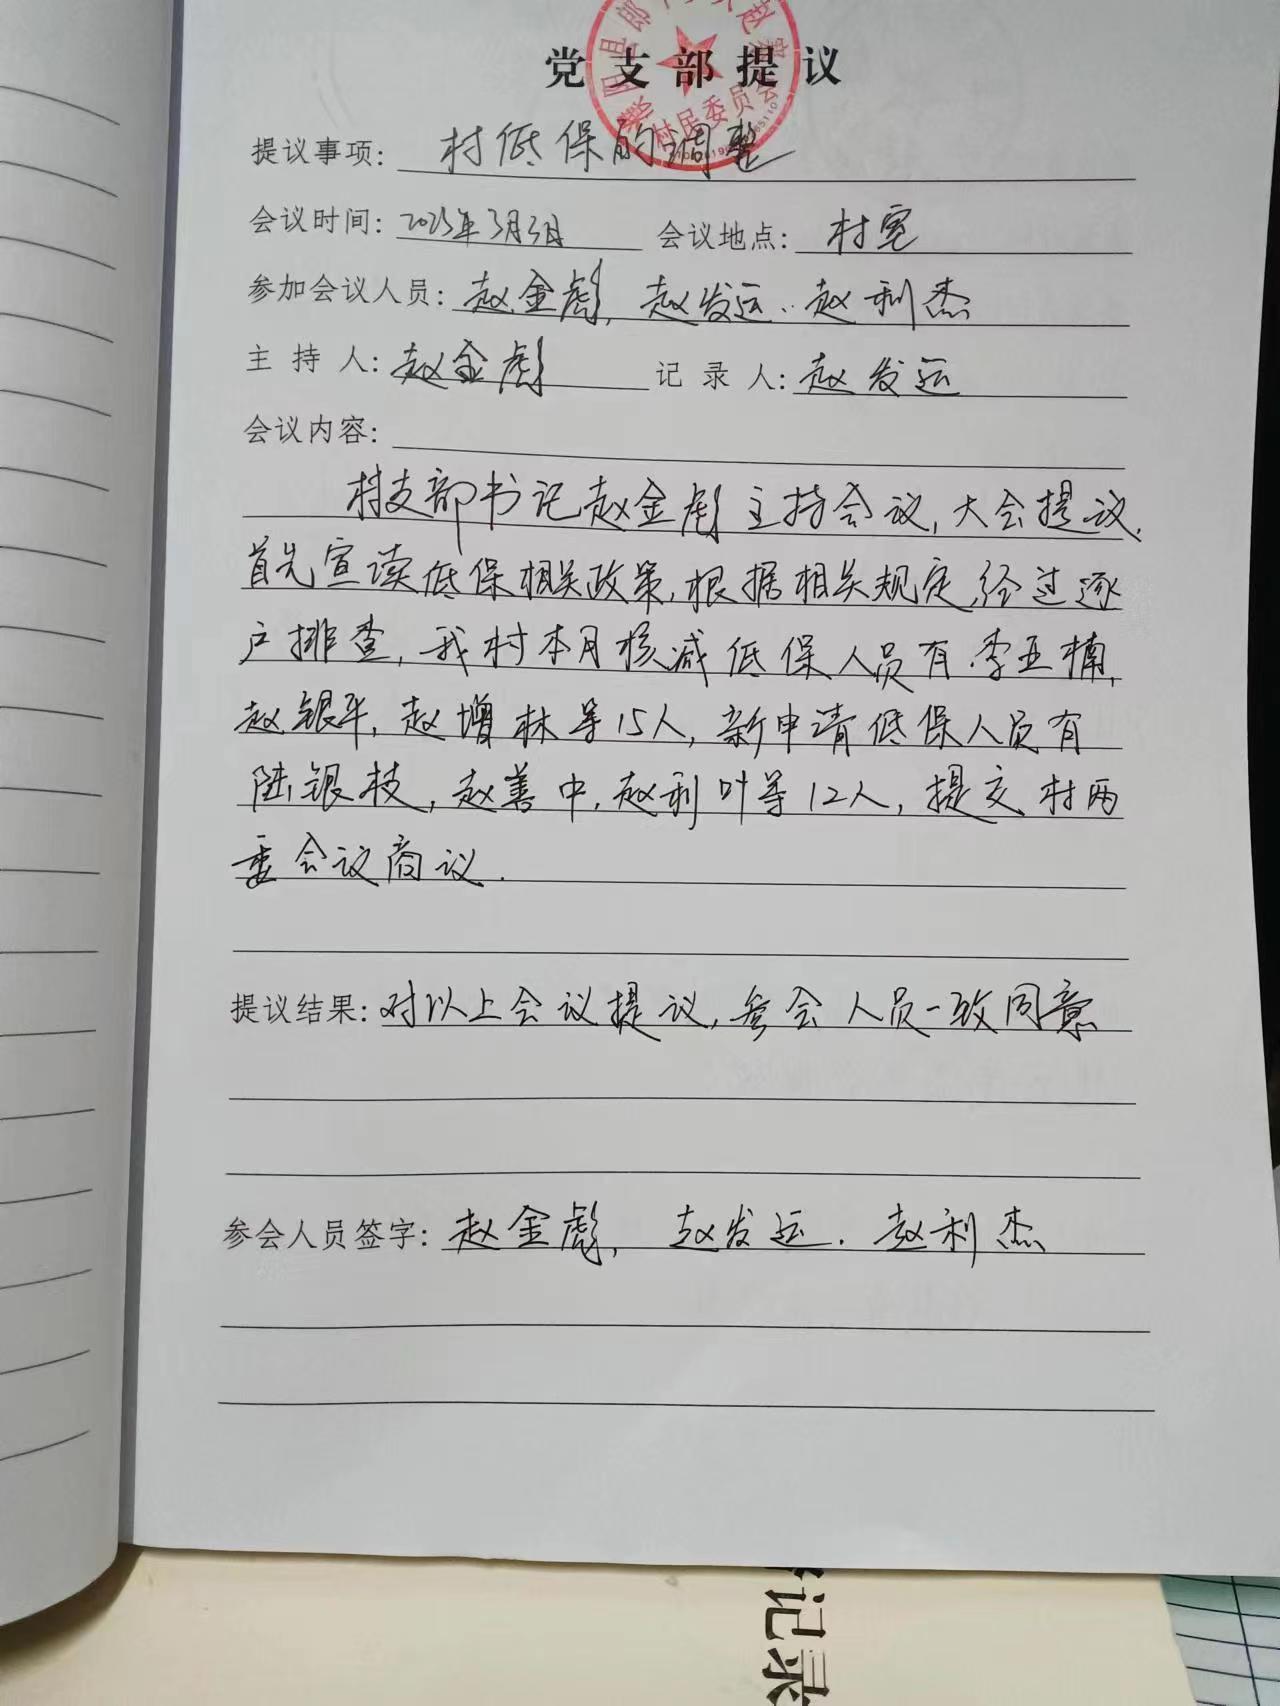 党支部提议
村居委员会
提议事项：村低保的调整
会议时间：2023年3月3日 会议地点：村室
参加会议人员：赵金彪，赵发运．赵利杰
主持人：赵金彪 记录人：赵发运
会议内容：
村支部书记赵金彪主持会议，大会提议，
首先宣读低保相关政策，根据相关规定，经过逐
户排查，我村本月核减低保人员有李亚楠，
赵银平，赵增林等15人，新申请低保人员有
陆银枝，赵善中，赵利叶等12人，提交村两
委会议商议．
提议结果：对以上会议提议，参会人员一致同意
参会人员签字：赵金彪，赵发运．赵利杰
记录